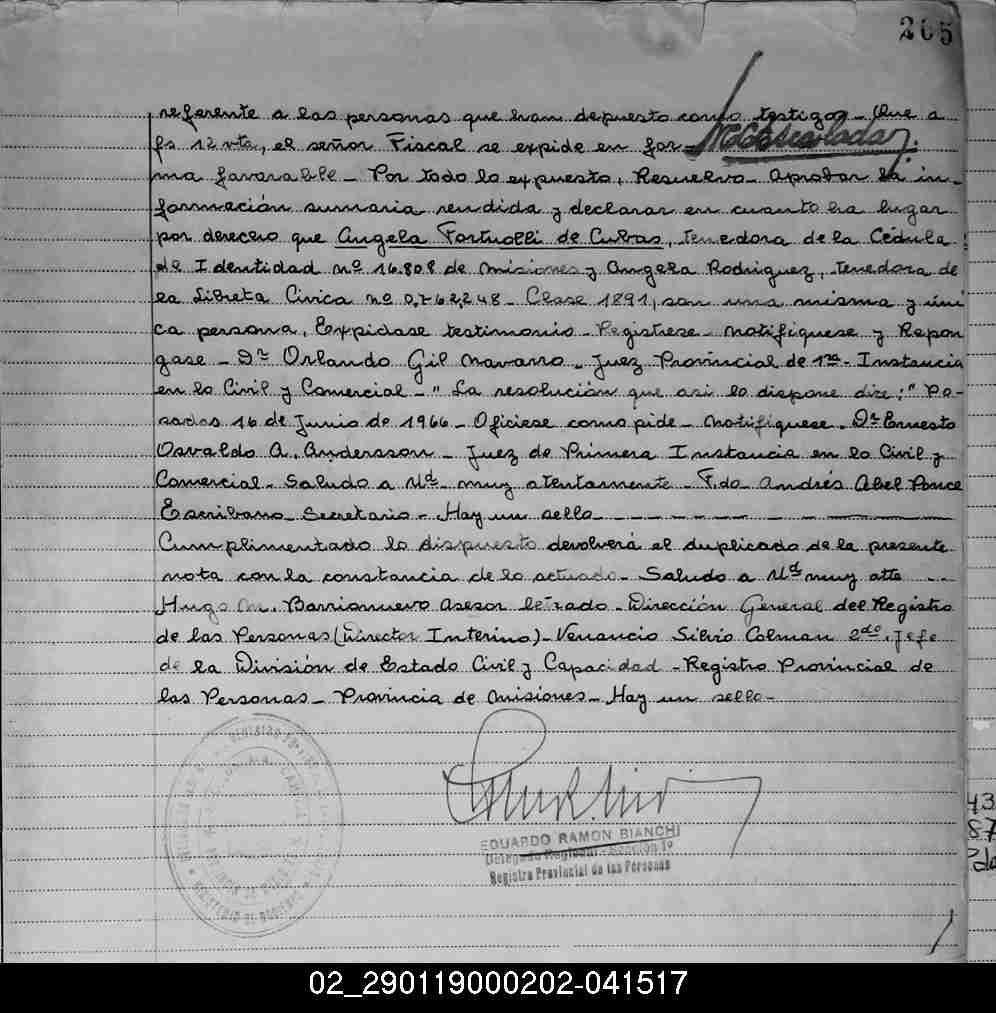 205
referente a las personas que han depuesto como testigos – Que a
fs 12 vta, el señor Fiscal se expide en for-
ma favorable – Por todo lo expuesto, Resuelvo – aprobar la in-
formación sumaria rendida y declarar en cuanto ha lugar
por derecho que Angela Fortuolli de Cubas, tenedora de la Cédula
de Identidad nº 16.808 de Misiones y Angela Rodriguez, tenedora de
la Libreta Civica nº 0,762,248 – Clase 1891, son una misma y úni
ca persona, Expidase testimonio – Registrese – notifiquese y Repon
gase – Dr Orlando Gil Navarro – Juez Provincial de 1ra – Instancia
en lo Civil y Comercial – " La resolución que asi lo dispone dice: " Po-
sadas 16 de Junio de 1966 – Oficiese como pide – notifiquese – Dr Ernesto
Osvaldo A. Andersson – Juez de Primera Instancia en lo Civil y
Comercial – Saludo a Ud – muy atentamente – F.do Andrés Abel Ponce
Escribano – Secretario – Hay un sello –
Cumplimentado lo dispuesto devolverá el duplicado de la presente
nota con la constancia de lo actuado – Saludo a Ud muy atte
Hugo M. Barrionuevo Asesor letrado – Dirección General del Registro
de las Personas (Director Interino) – Venancio Silvio Colman 2do. Jefe
de la División de Estado Civil y Capacidad – Registro Provincial de
las Personas – Provincia de Misiones – Hay un sello –
EDUARDO RAMON BIANCHI
Registro Provincial de las Personas
43
87
02_290119000202-041517